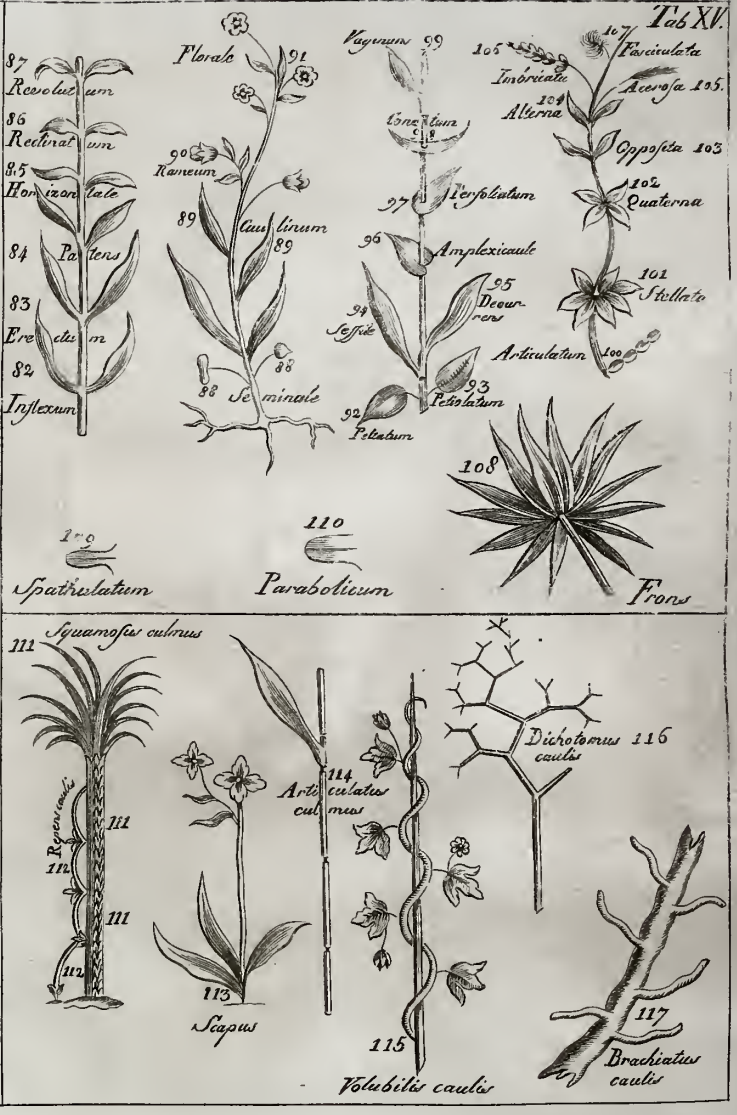 Tab XV.
87
Revolutum
86
Reclinatum
85
Horizontale
84 Patens
83
Erectum
82
Inflexum
Florale 91
90
Rameum
89 Caulinum
89
88 88
Seminale
Vaginans 99
Connatum
98
97 Perfoliatum
96 Amplexicaule
95
94 Decur-
rens
Sessile
93
92 Petiolatum
Peltatum
107
106 Fasciculata
Imbricata
Acerosa 105.
104
Alterna
Opposita 103
102
Quaterna
101
Stellata
Articulatum 100
108
Frons
109
Spathulatum
110
Parabolicum
Squamosus culmus
111
Repens caulis
111
112
111
112
113
Scapus
114
Articulatus
culmus
115
Volubilis caulis
Dichotomus 116
caulis
117
Brachiatus
caulis